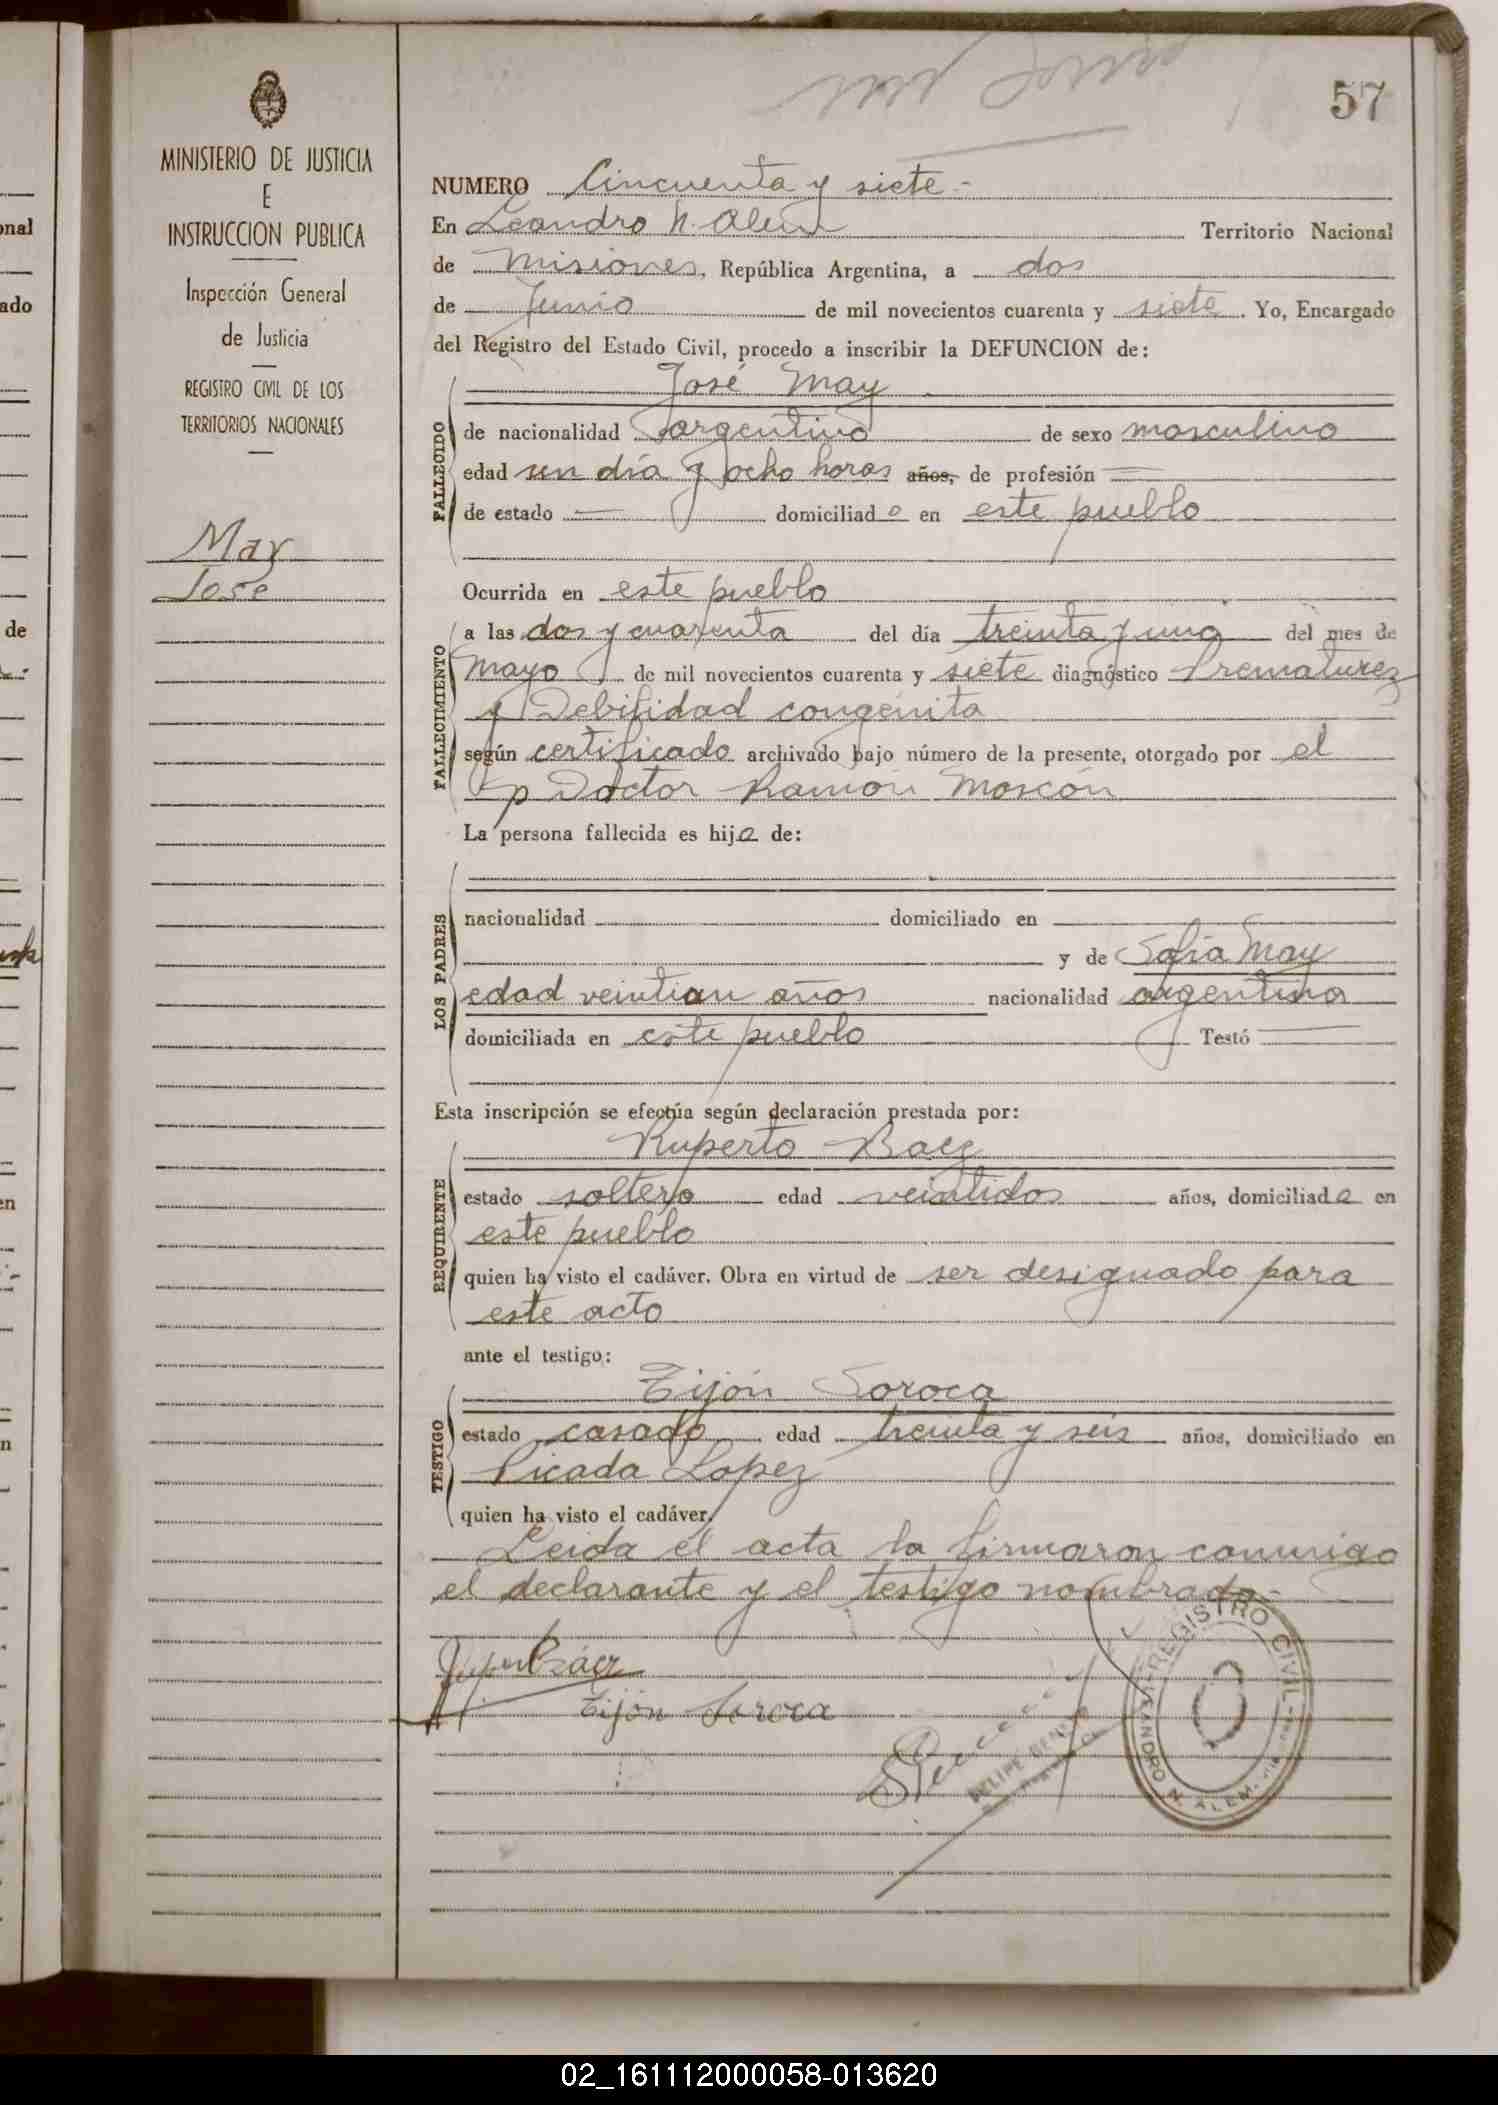 57
MINISTERIO DE JUSTICIA
E
INSTRUCCION PUBLICA
Inspección General
de Justicia
REGISTRO CIVIL DE LOS
TERRITORIOS NACIONALES
May
José
NUMERO Cincuenta y siete -
En Leandro N. Alem Territorio Nacional
de Misiones, República Argentina, a dos
de Junio de mil novecientos cuarenta y siete. Yo, Encargado
del Registro del Estado Civil, procedo a inscribir la DEFUNCION de:
José May
FALLECIDO
de nacionalidad argentino de sexo masculino
edad un día y ocho horas años, de profesión —
de estado — domiciliado en este pueblo
Ocurrida en este pueblo
FALLECIMIENTO
a las dos y cuarenta del día treinta y uno del mes de
Mayo de mil novecientos cuarenta y siete diagnóstico Prematurez
y Debilidad congénita
según certificado archivado bajo número de la presente, otorgado por el
Doctor Ramón Moscón
La persona fallecida es hijo de:
LOS PADRES
nacionalidad domiciliado en
y de Sofía May
edad veintiun años nacionalidad argentina
domiciliada en este pueblo Testó —
Esta inscripción se efectúa según declaración prestada por:
Ruperto Baez
REQUIRENTE
estado soltero edad veintidos años, domiciliado en
este pueblo
quien ha visto el cadáver. Obra en virtud de ser designado para
este acto
ante el testigo:
Tijón Soroca
TESTIGO
estado casado edad treinta y seis años, domiciliado en
Picada Lopez
quien ha visto el cadáver.
Leida el acta la firmaron conmigo
el declarante y el testigo nombrado.-
Báez
Tijón Soroca
REGISTRO CIVIL
LEANDRO N. ALEM
onal
ado
de
en
n
02_161112000058-013620